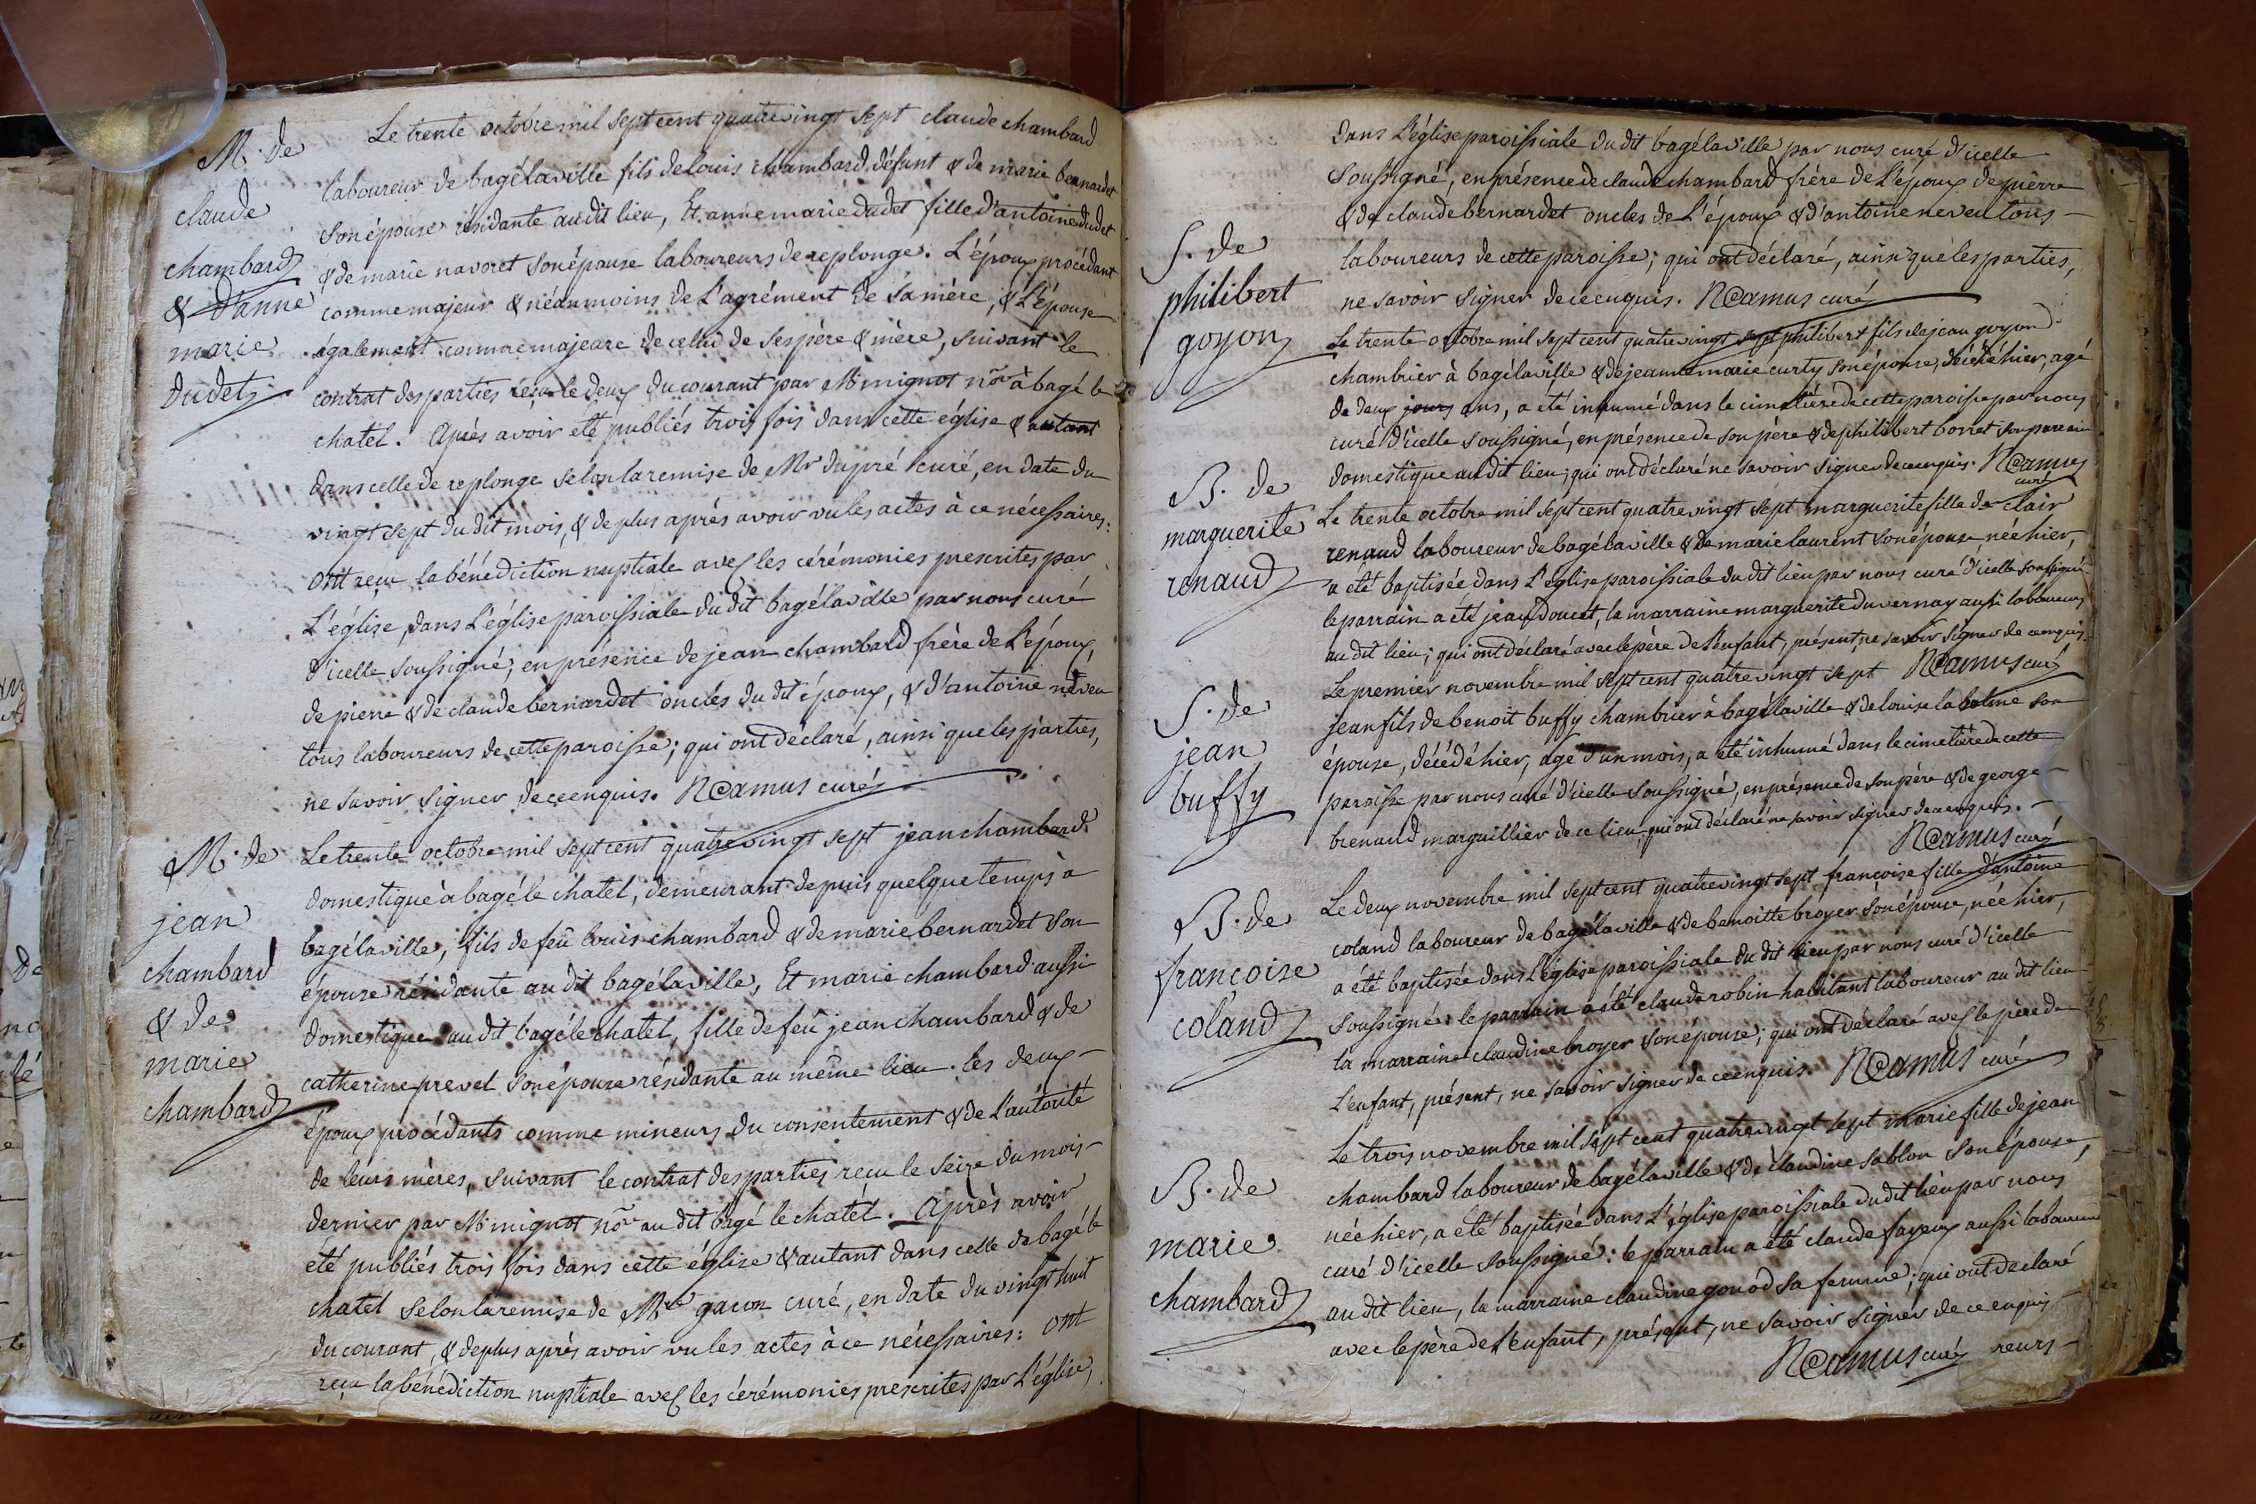 M. de
claude
chambard
& d'anne
marie
dudet
Le trente octobre mil sept cent quatrevingt sept claude chambard
laboureur de bagélaville fils de louis chambard défunt & de marie bernardet
son épouse résidante audit lieu, Et anne marie dudet fille d'antoine dudet
& de marie navoret son épouse laboureurs de replonge. L'époux procédant
comme majeur & néanmoins de l'agrément de sa mère, & L'épouse
également comme majeure de celui de ses père & mère, suivant le
contrat des parties reçu le deux du courant par Me mignot nore à bagé le
chatel. Après avoir été publiés trois fois dans cette église & autant
dans celle de replonge selon la remise de Mr dupré curé, en date du
vingt sept du dit mois, & de plus après avoir vu les actes à ce nécessaires:
Ont reçu la bénédiction nuptiale avec les cérémonies prescrites par
L'église, dans L'église paroissiale du dit bagélaville par nous curé
d'icelle soussigné, en présence de jean chambard frère de L'époux,
de pierre & de claude bernardet oncles du dit époux, & d'antoine neveu
tous laboureurs de cette paroisse; qui ont déclaré, ainsi que les parties,
ne savoir signer de ce enquis. N Camus curé
M. de
jean
chambard
& de
marie
chambard
Le trente octobre mil sept cent quatrevingt sept jean chambard
domestique à bagé le chatel, demeurant depuis quelque temps à
bagélaville, fils de feû louis chambard & de marie bernardet son
épouse résidante au dit bagélaville, Et marie chambard aussi
domestique au dit bagé le chatel, fille de feû jean chambard & de
catherine prevel son épouse résidante au même lieu. les deux
époux procédants comme mineurs du consentement & de l'autorité
de leurs mères, suivant le contrat des parties reçu le seize du mois
dernier par Me mignot nore au dit bagé le chatel. Après avoir
été publiés trois fois dans cette église & autant dans celle de bagé le
chatel selon la remise de Mre gacon curé, en date du vingt huit
du courant, & de plus après avoir vu les actes à ce nécessaires: ont
reçu la bénédiction nuptiale avec les cérémonies prescrites par L'église,
dans L'église paroissiale du dit bagélaville par nous curé d'icelle
Soussigné, en présence de claude chambard frère de L'époux de pierre
& de claude bernardet oncles de L'époux & d'antoine neveu tous
laboureurs de cette paroisse; qui ont déclaré, ainsi que les parties,
ne savoir signer de ce enquis. N Camus curé
S. de
philibert
goyon
Le trente octobre mil sept cent quatrevingt sept philibert fils de jean goyon
chambrier à bagélaville & de jeanne marie curty son épouse, décédé hier, agé
de deux jours ans, a été inhumé dans le cimetière de cette paroisse par nous
curé d'icelle soussigné, en présence de son père & de philibert borret son parrain
domestique au dit lieu; qui ont déclaré ne savoir signer de ce enquis. N Camus
curé
B. de
marguerite
renaud
Le trente octobre mil sept cent quatrevingt sept marguerite fille de clair
renaud laboureur de bagélaville & de marie laurent son épouse née hier,
a été baptisée dans L'église paroissiale du dit lieu par nous curé d'icelle soussigné
le parrain a été jean doucet, la marraine marguerite duvernay aussi laboureurs
au dit lieu; qui ont déclaré avec le père de l'enfant, présent, ne savoir signer de ce enquis.
N Camus curé
S. de
jean
buffy
Le premier novembre mil sept cent quatrevingt sept
jean fils de benoit buffy chambrier à bagélaville & de louise labalme son
épouse, décédé hier, agé d'un mois, a été inhumé dans le cimetière de cette
paroisse par nous curé d'icelle soussigné, en présence de son père & de george
brenaud marguillier de ce lieu; qui ont déclaré ne savoir signer de ce enquis.
N Camus curé
B. de
françoise
coland
Le deux novembre mil sept cent quatrevingt sept françoise fille d'antoine
coland laboureur de bagélaville & de benoitte broyer son épouse, née hier,
a été baptisée dans L'église paroissiale du dit lieu par nous curé d'icelle
soussigné: le parrain a été claude robin habitant laboureur au dit lieu
la marraine claudine broyer son épouse; qui ont déclaré avec le père de
L'enfant, présent, ne savoir signer de ce enquis. N Camus curé
B. de
marie
chambard
Le trois novembre mil sept cent quatrevingt sept marie fille de jean
chambard laboureur de bagélaville & de claudine sablon son épouse,
née hier, a été baptisée dans L'église paroissiale du dit lieu par nous
curé d'icelle soussigné: le parrain a été claude fayeux aussi laboureur
au dit lieu, la marraine claudine gonod sa femme; qui ont déclaré
avec le père de l'enfant, présent, ne savoir signer de ce enquis
N Camus curé reurs